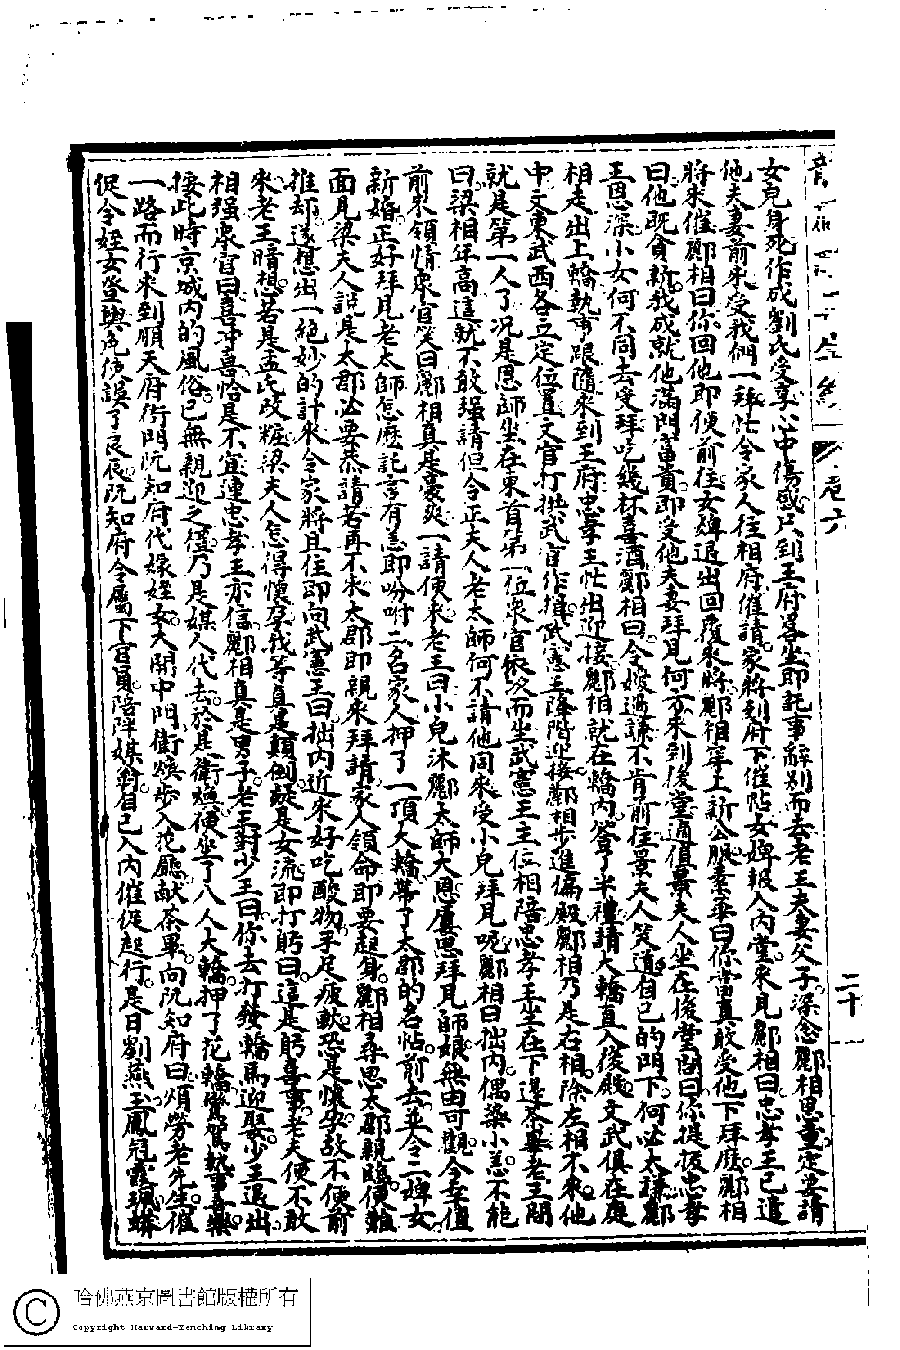 女兒身死作成劉氏受享心中傷感只到王府畧坐即託事辭别而去老王夫妻父子深念酈相恩重定要請
他夫妻前來受我們一拜忙令家人往相府催請家將到府下催帖女婢報入內堂來見酈相曰忠孝王已遣
將來催酈相曰你回他即便前往女婢退出回覆來將酈相穿上新公服素華曰你當真敢受他下拜麼酈相
曰他既貪新我成就他滿門富貴即受他夫妻拜見何夯來到後堂通值景夫人坐在後堂問曰你提拔忠孝
王恩深小女何不同去受拜吃幾杯喜酒酈相曰令嫂過謙不肯前往景夫人笑道自己的門下何必太謙酈
相走出上轎執事跟隨來到王府忠孝王忙出迎接酈相就在轎內答了半禮請大轎直入後殿文武俱在庭
中文東武西各立定位置文官打拱武官作揖武憲王降階迎接酈相步進偏殿酈相乃是右相除左相不來他
就是第一人了况是恩師坐在東首第一位衆官依次而坐武憲王主位相陪忠孝王坐在下邊茶畢老王問
曰梁相年高這就不敢强請但令正夫人老太師何不請他同來受小兒拜見呢酈相曰拙內偶染小恙不能
前來領情衆官笑曰酈相真是豪爽一請便來老王曰小兒沐酈太師大恩屢思拜見師娘無由可觀今幸值
新婚正好拜見老太師怎麼託言有恙即吩咐二名家人押了一頂大轎帶了太郡的名帖前去並令二婢女
面見梁夫人説是太郡必要恭請若再不來太郡即親來拜請家人領命即要起身酈相尋思太郡親臨便難
推却遂想出一絕妙的計來令家將且住即向武憲王曰拙內近來好吃酸物手足疲軟恐是懷孕故不便前
來老王暗想若是孟氏改粧梁夫人怎得懷孕我等真是顛倒疑是女流即打躬曰這是躬喜事老夫便不敢
相强衆官曰喜冲喜恰是不宜連忠孝王亦信酈相真是男子老王對少王曰你去打發轎馬迎娶少王退出
接此時京城內的風俗已無親迎之禮乃是媒人代去於是衛煥便坐了八人大轎押了花轎鴛鴦執事喜樂
一路而行來到順天府衙門阮知府代嫁姪女大開中門衛煥步入花廳献茶畢向阮知府曰煩勞老先生催
促令姪女登輿免使誤了良辰阮知府令屬下官員陪伴媒翁自己入內催促起行是日劉燕玉鳳冠霞珮蟒
卷六
二十
哈佛燕京圖書館版權所有
Copyright Harvard-Yenching Library